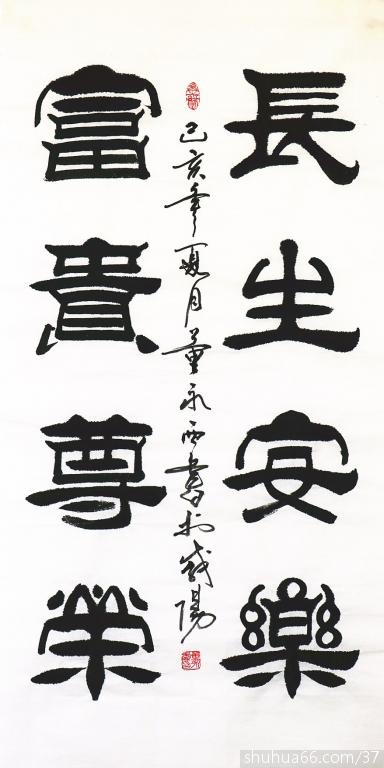 長生安樂
富貴尊榮
己亥年夏月董永西書於咸陽
shuhua66.com/37